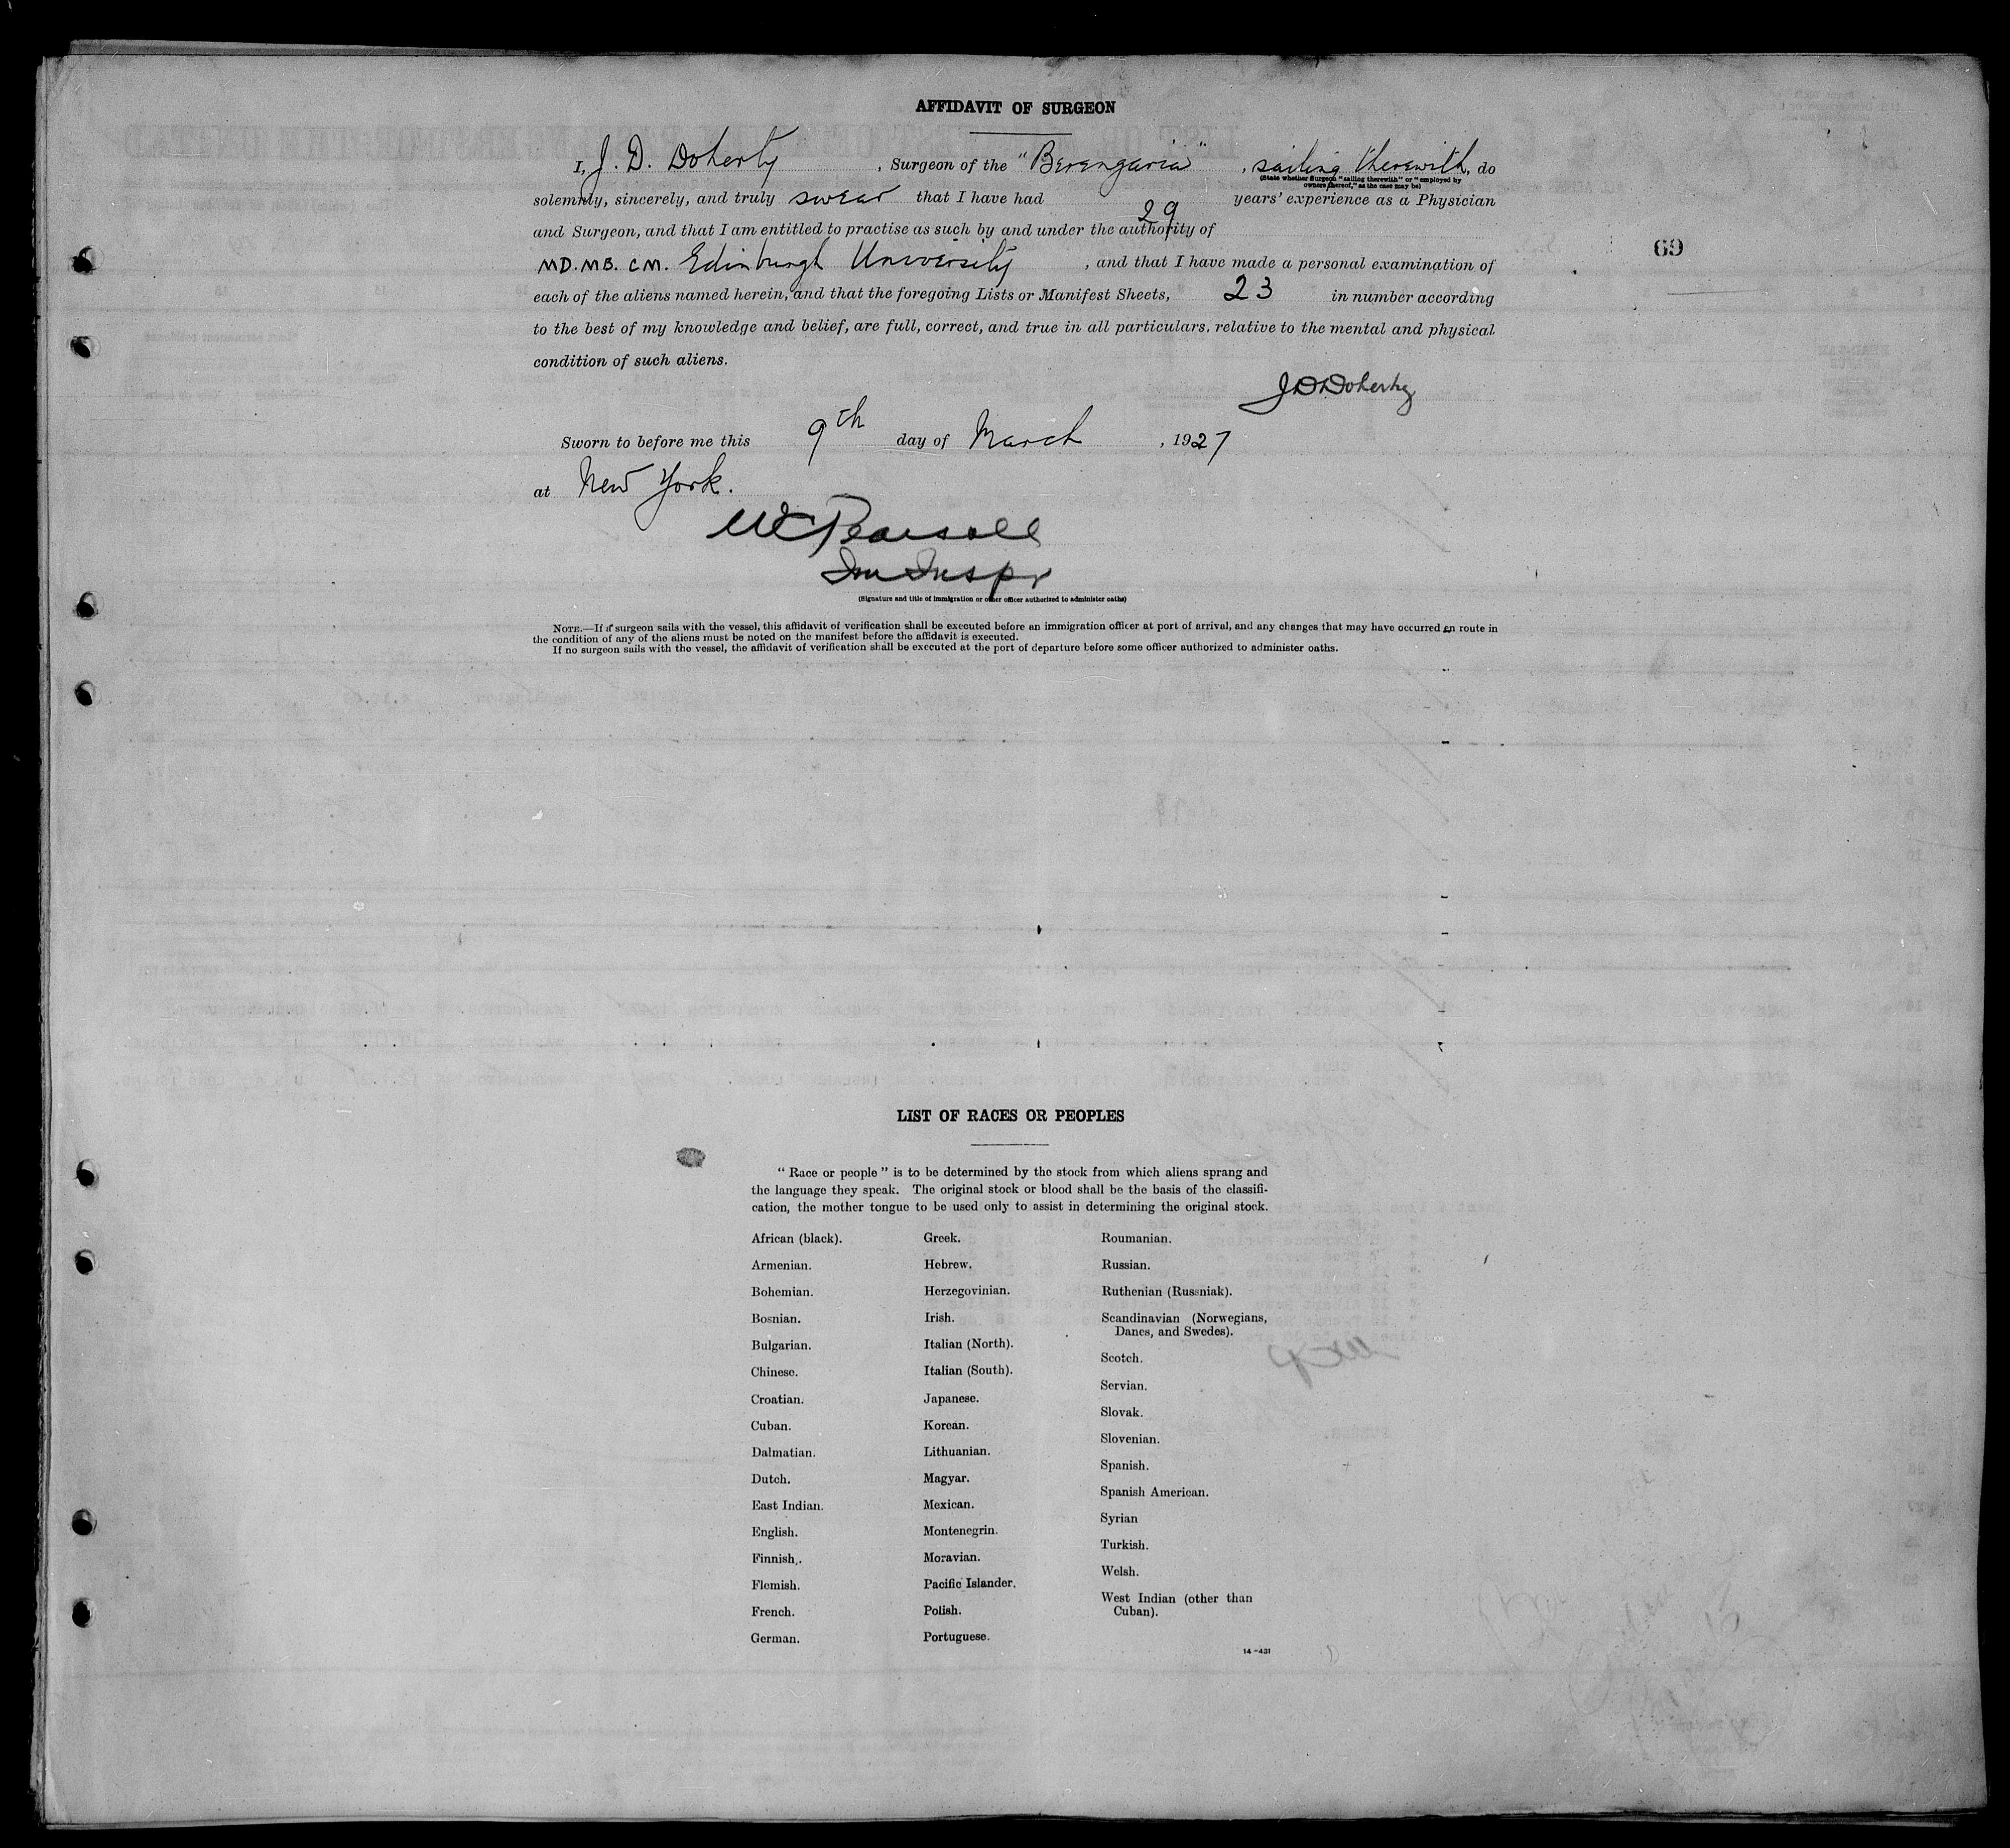 AFFIDAVIT OF SURGEON
I, J. D. Doherty , Surgeon of the "Berengaria" , sailing therewith, do
(State whether Surgeon "sailing therewith" or "employed by
owners thereof," as the case may be)
solemnly, sincerely, and truly swear that I have had 29 years' experience as a Physician
and Surgeon, and that I am entitled to practise as such by and under the authority of
MD. MB. CM. Edinburgh University , and that I have made a personal examination of
69
each of the aliens named herein, and that the foregoing Lists or Manifest Sheets, 23 in number according
to the best of my knowledge and belief, are full, correct, and true in all particulars, relative to the mental and physical
condition of such aliens.
J D Doherty
Sworn to before me this 9th day of March , 1927
at New York.
WC Pearsall
Im Inspr
(Signature and title of immigration or other officer authorized to administer oaths)
NOTE.—If a surgeon sails with the vessel, this affidavit of verification shall be executed before an immigration officer at port of arrival, and any changes that may have occurred en route in
the condition of any of the aliens must be noted on the manifest before the affidavit is executed.
If no surgeon sails with the vessel, the affidavit of verification shall be executed at the port of departure before some officer authorized to administer oaths.
LIST OF RACES OR PEOPLES
"Race or people" is to be determined by the stock from which aliens sprang and
the language they speak. The original stock or blood shall be the basis of the classifi-
cation, the mother tongue to be used only to assist in determining the original stock.
African (black).
Armenian.
Bohemian.
Bosnian.
Bulgarian.
Chinese.
Croatian.
Cuban.
Dalmatian.
Dutch.
East Indian.
English.
Finnish.
Flemish.
French.
German.
Greek.
Hebrew.
Herzegovinian.
Irish.
Italian (North).
Italian (South).
Japanese.
Korean.
Lithuanian.
Magyar.
Mexican.
Montenegrin.
Moravian.
Pacific Islander.
Polish.
Portuguese.
Roumanian.
Russian.
Ruthenian (Russniak).
Scandinavian (Norwegians,
Danes, and Swedes).
Scotch.
Servian.
Slovak.
Slovenian.
Spanish.
Spanish American.
Syrian
Turkish.
Welsh.
West Indian (other than
Cuban).
14-431